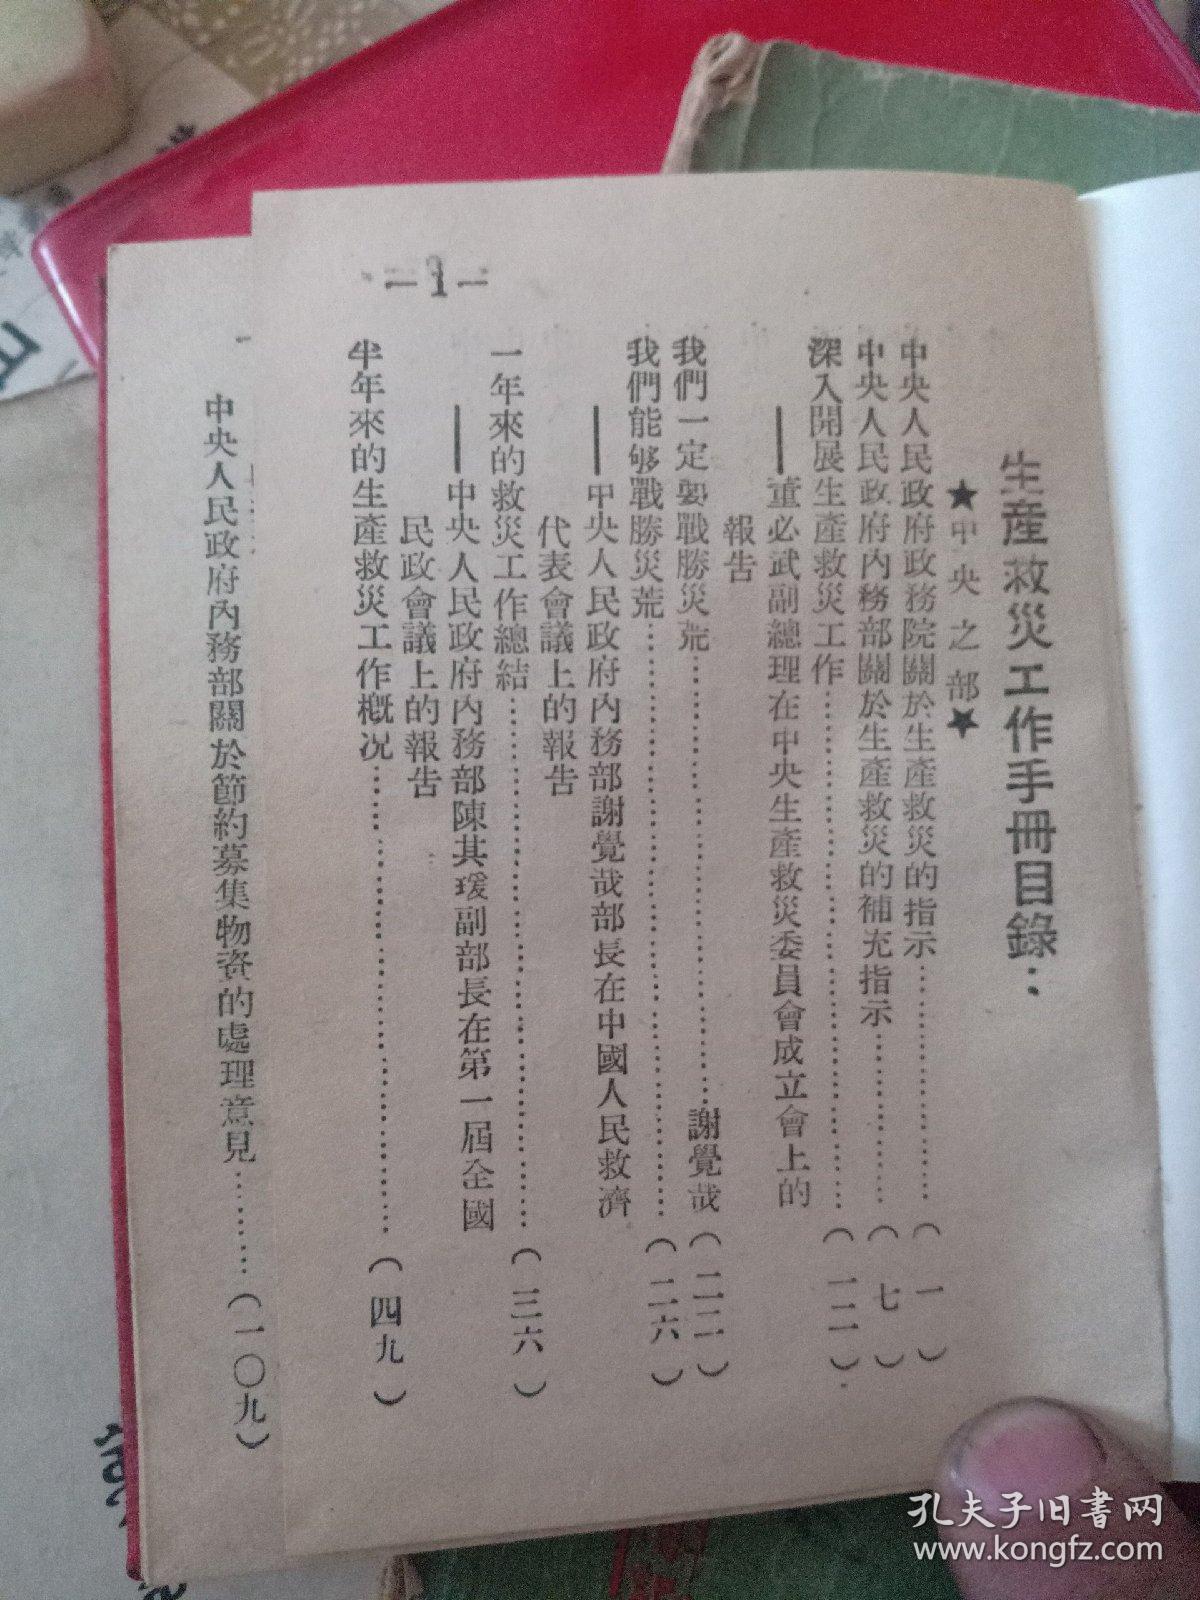 生產救災工作手冊目錄：
★中央之部★
中央人民政府政務院關於生產救災的指示……………………（一）
中央人民政府內務部關於生產救災的補充指示………………（七）
深入開展生產救災工作……………………………………（一二）
——董必武副總理在中央生產救災委員會成立會上的
報告
我們一定要戰勝災荒……………………………謝覺哉（二二）
我們能够戰勝災荒………………………………………（二六）
——中央人民政府內務部謝覺哉部長在中國人民救濟
代表會議上的報告
一年來的救災工作總結……………………………………（三六）
——中央人民政府內務部陳其瑗副部長在第一屆全國
民政會議上的報告
半年來的生產救災工作概况………………………………（四九）
—1—
中央人民政府內務部關於節約募集物資的處理意見………（一〇九）
孔夫子旧書网
www.kongfz.com